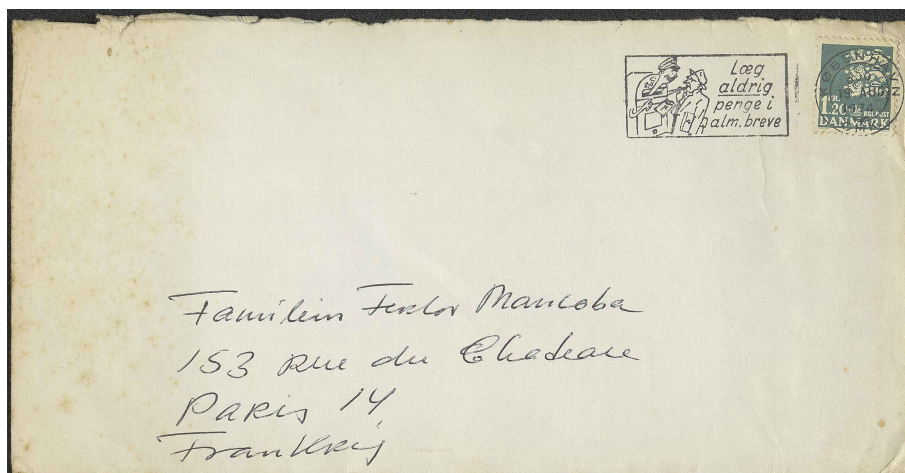 Læg
aldrig
penge i
alm. breve
KØBENHAVN
1 KR.
20 KGL POST
DANMARK
Familien Ferlov Mancoba
153 Rue du Chateau
Paris 14
Frankrig